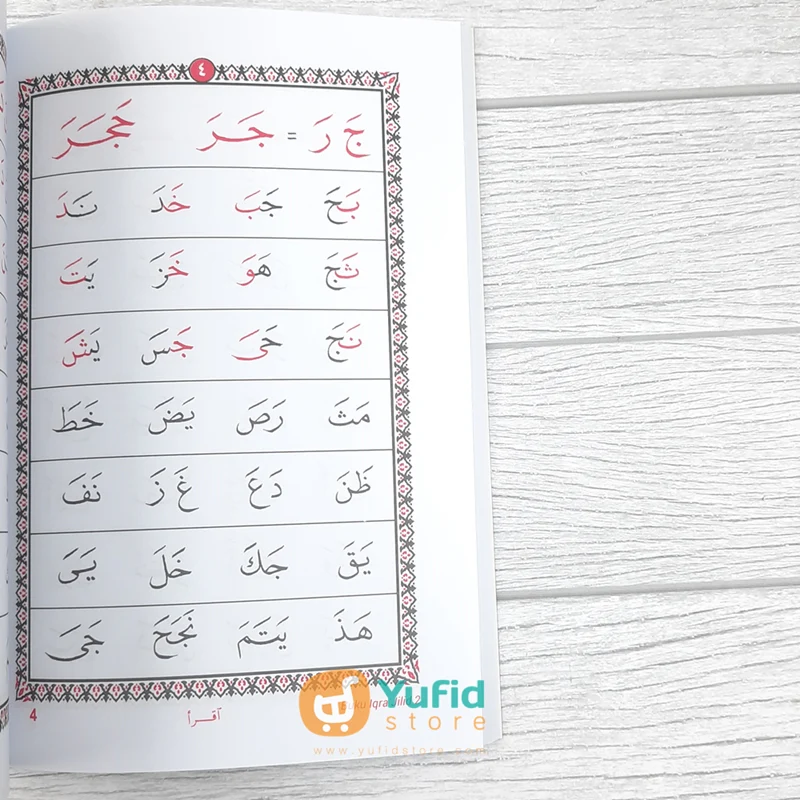 ٤
جَ رَ = جَرَ حَجَرَ
بَحَ جَبَ خَدَ نَدَ
ثَجَ هَوَ خَزَ يَتَ
نَجَ حَىَ جَسَ يَشَ
مَثَ رَصَ يَضَ خَطَ
ظَنَ دَعَ غَ زَ نَفَ
يَقَ جَكَ خَلَ يَىَ
هَذَ يَتَمَ نَجَحَ جَىَ
4 اقرأ Buku Iqra Jilid 2
Yufid
store
www.yufidstore.com